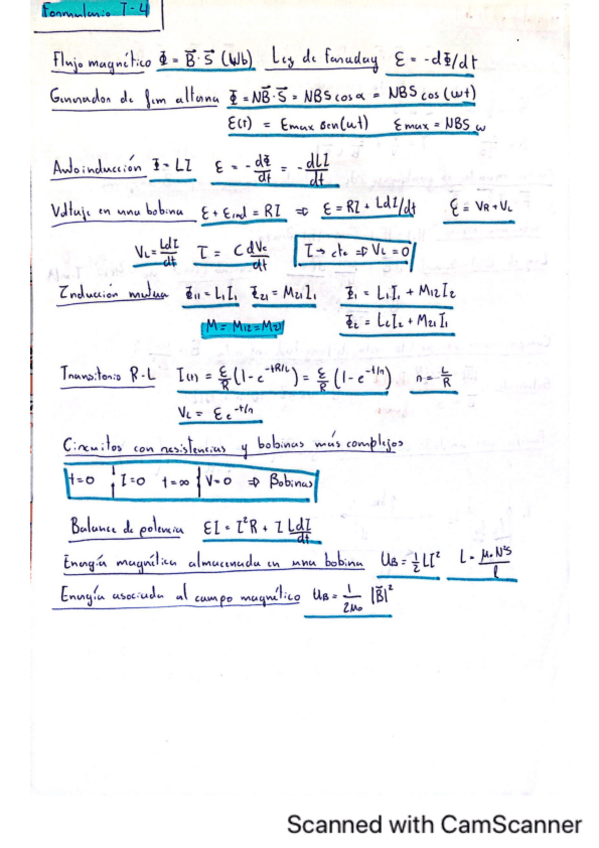 Formulario T-4
Flujo magnético Φ = B⃗ · S⃗ (Wb) Ley de faraday ε = -dΦ/dt
Generador de fem alterna Φ = NB⃗·S⃗ = NBS cos α = NBS cos (ωt)
ε(t) = εmax sen(ωt) εmax = NBS ω
Autoinducción Φ = LI ε = -dΦ/dt = -dLI/dt
Voltaje en una bobina ε + εind = RI ⇒ ε = RI + LdI/dt ε = VR + VL
VL = LdI/dt I = C dVc/dt I → cte ⇒ VL = 0
Inducción mutua Φ11 = L1I1 Φ21 = M21I1 Φ1 = L1I1 + M12I2
M = M12 = M21 Φ2 = L2I2 + M21I1
Transitorio R-L I(t) = ε/R (1 - e^-tR/L) = ε/R (1 - e^-t/n) n = L/R
VL = ε e^-t/n
Circuitos con resistencias y bobinas más complejos
t=0 { I=0 t=∞ { V=0 ⇒ Bobinas
Balance de potencia εI = I²R + I LdI/dt
Energía magnética almacenada en una bobina UB = 1/2 LI² L = μ0 N²S/l
Energía asociada al campo magnético UB = 1/2μ0 |B⃗|²
Scanned with CamScanner